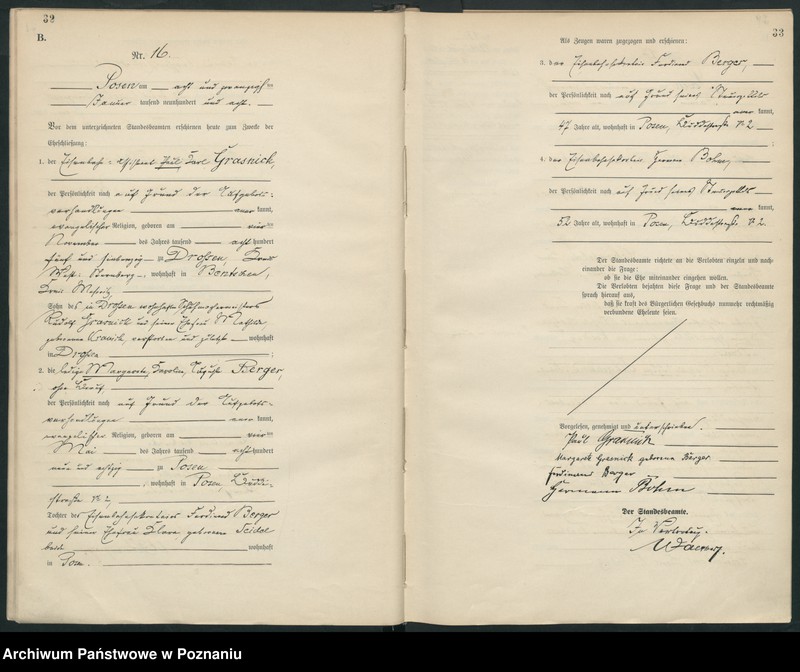 32
B.
Nr. 16.
Posen am acht und zwanzigsten
Januar tausend neunhundert und acht.
Vor dem unterzeichneten Standesbeamten erschienen heute zum Zwecke der
Eheschließung:
1. der Eisenbahn-Assistent Paul Karl Grasnick,
der Persönlichkeit nach auf Grund der Aufgebots-
verhandlungen kannt,
evangelischer Religion, geboren am vier
November des Jahres tausend acht hundert
fünf und siebenzig zu Drossen, Kreis
West-Sternberg, wohnhaft in Bentschen,
Kreis Meseritz
Sohn des in Drossen wohnhaften Schuhmachermeisters
Rudolf Grasnick und seiner Ehefrau
geborenen verstorben und zuletzt wohnhaft
in Drossen ;
2. die ledige Margarete, Karoline, Auguste Berger,
ohne Beruf,
der Persönlichkeit nach auf Grund der Aufgebots-
verhandlungen kannt,
evangelischer Religion, geboren am vier
Mai des Jahres tausend achthundert
neun und achtzig zu Posen
, wohnhaft in Posen,
straße N 2,
Tochter des Eisenbahnsekretärs Ferdinand Berger
und seiner Ehefrau Klara geborenen Seidel
beide wohnhaft
in Posen.
33
Als Zeugen waren zugezogen und erschienen:
3. der Eisenbahnsekretär Ferdinand Berger,
der Persönlichkeit nach auf Grund seines
kannt,
47 Jahre alt, wohnhaft in Posen, N 2
;
4. der Eisenbahnsekretär Hermann Bohm,
der Persönlichkeit nach auf Grund seines
kannt,
52 Jahre alt, wohnhaft in Posen, N 2.
Der Standesbeamte richtete an die Verlobten einzeln und nach-
einander die Frage:
ob sie die Ehe miteinander eingehen wollen.
Die Verlobten bejahten diese Frage und der Standesbeamte
sprach hierauf aus,
daß sie kraft des Bürgerlichen Gesetzbuchs nunmehr rechtmäßig
verbundene Eheleute seien.
Vorgelesen, genehmigt und unterschrieben.
Paul Grasnick
Margarete Grasnick geborene Berger
Ferdinand Berger
Hermann Bohm
Der Standesbeamte.
In Vertretung.
Archiwum Państwowe w Poznaniu